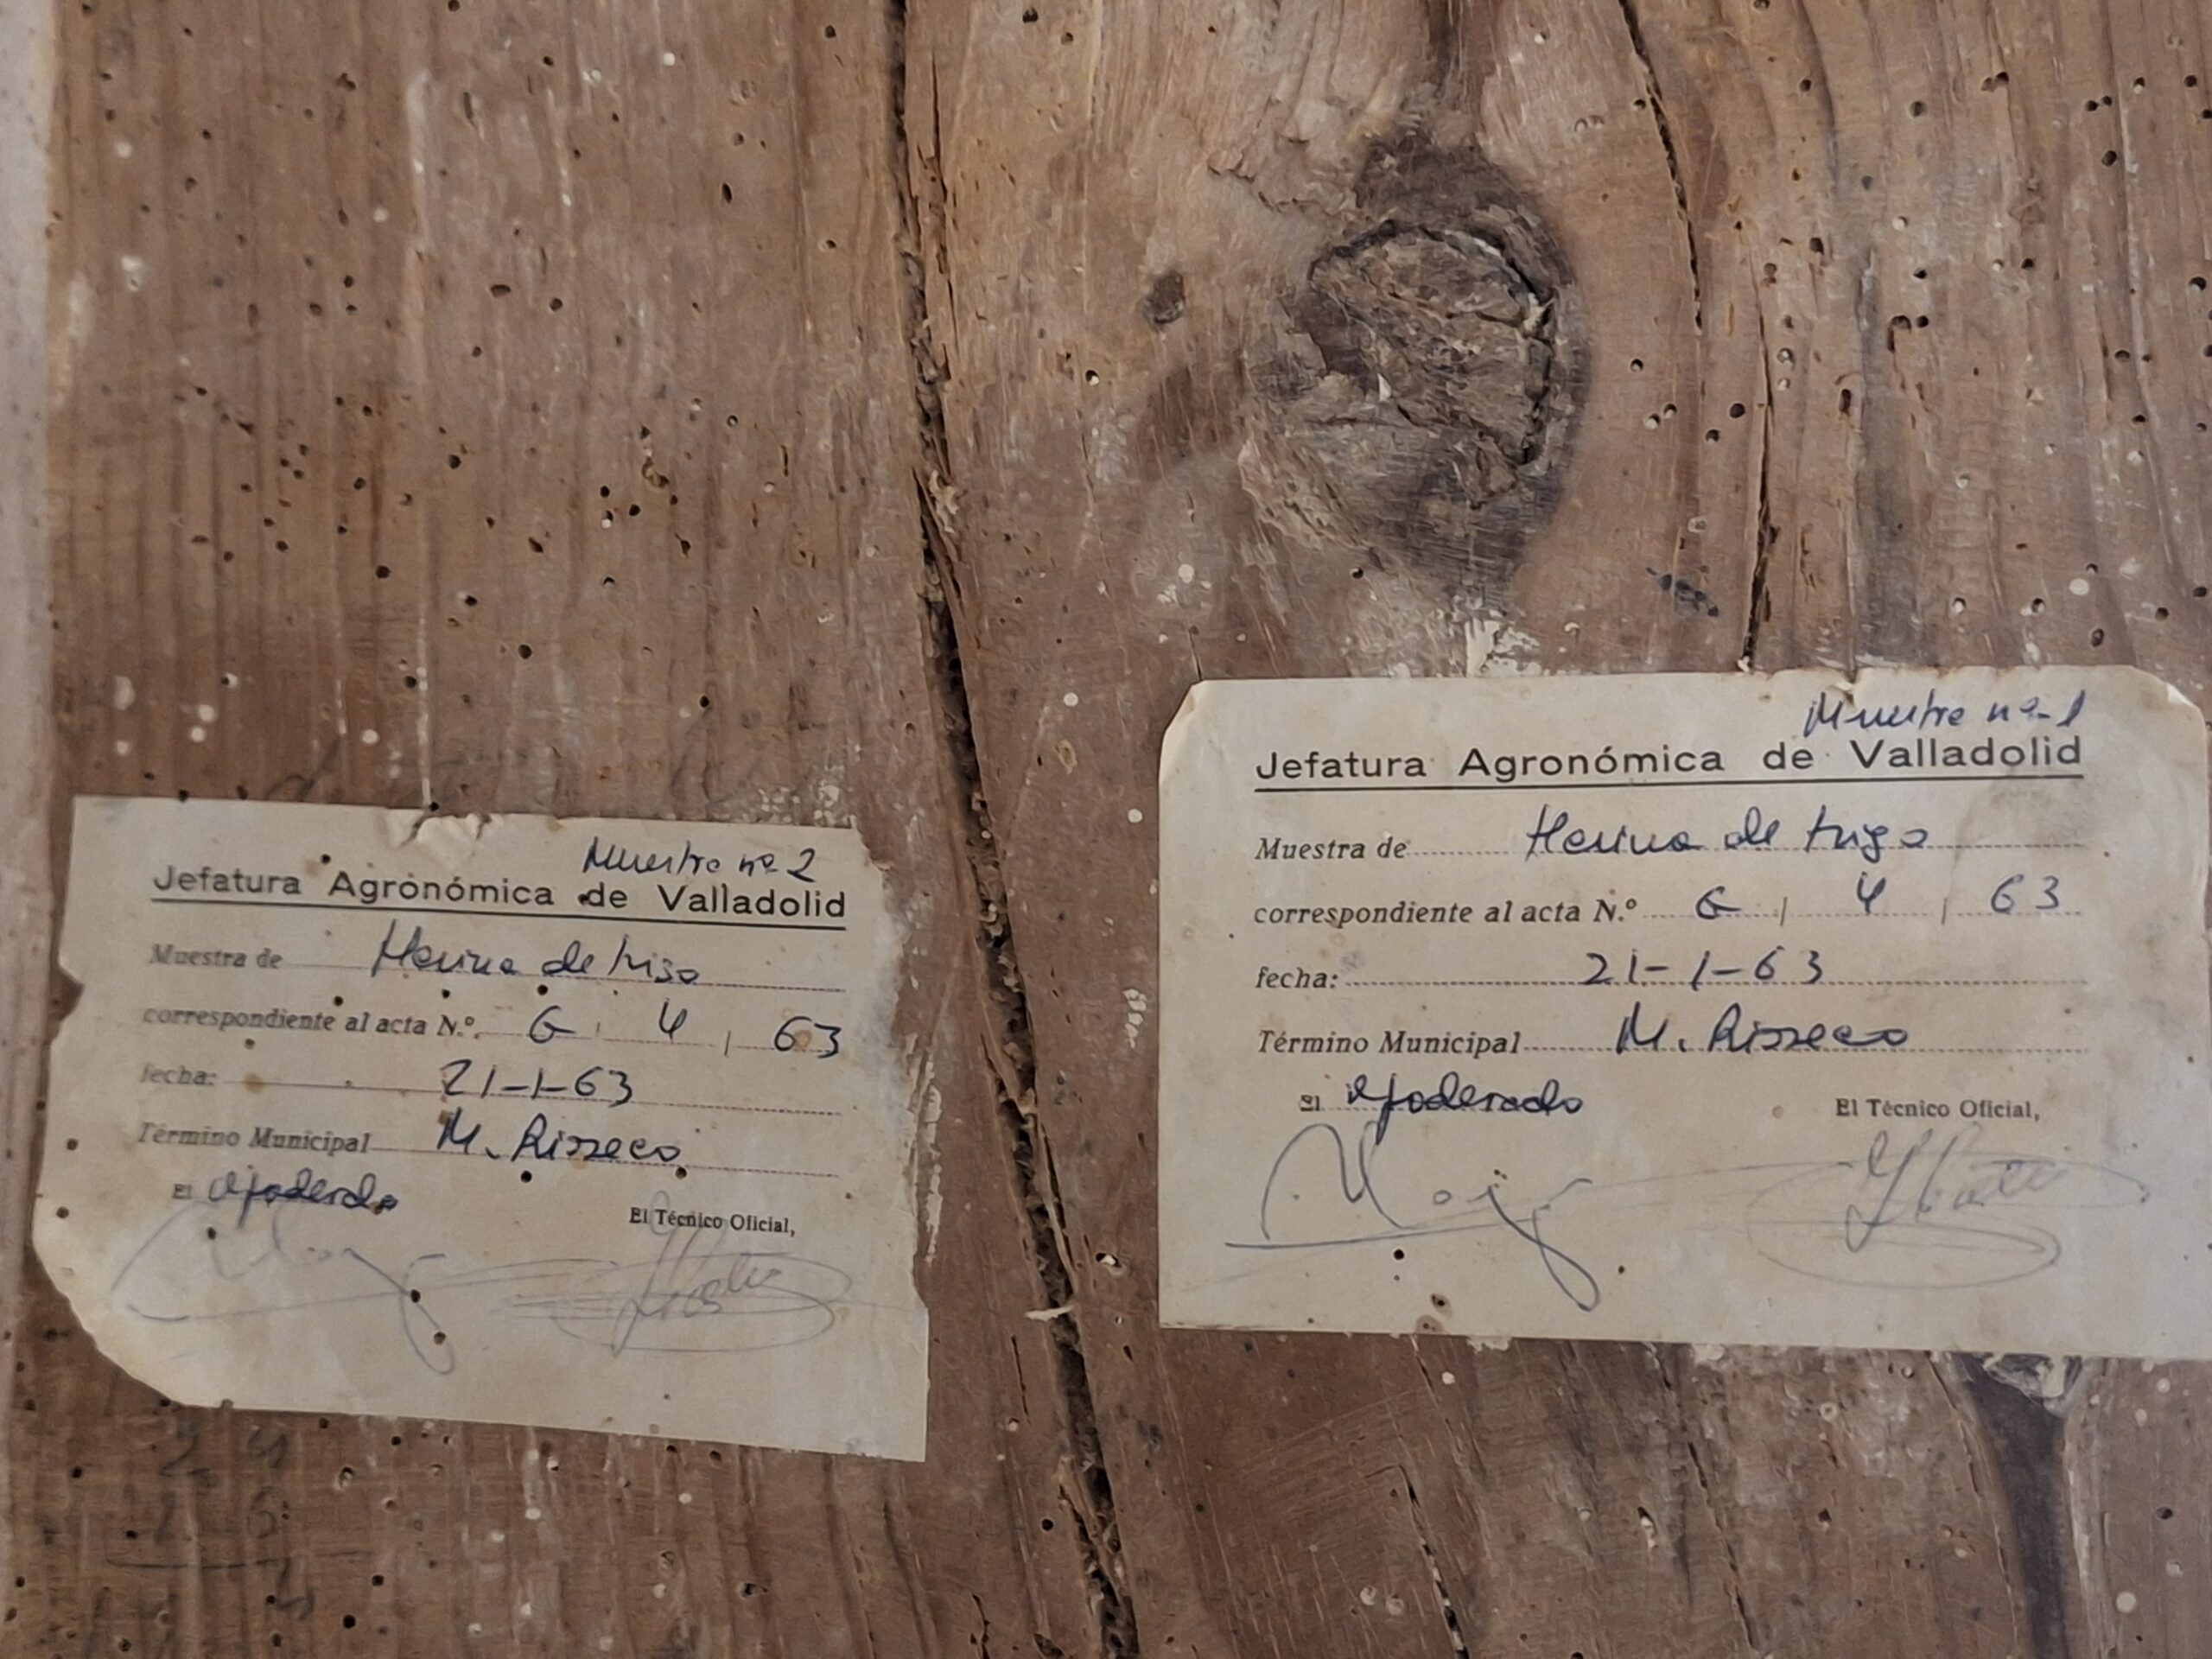 Muestra nº 2
Jefatura Agronómica de Valladolid
Muestra de Harina de trigo
correspondiente al acta N.º G | 4 | 63
fecha: 21-1-63
Término Municipal M. Rioseco
El apoderado
El Técnico Oficial,
Muestra nº 1
Jefatura Agronómica de Valladolid
Muestra de Harina de trigo
correspondiente al acta N.º G | 4 | 63
fecha: 21-1-63
Término Municipal M. Rioseco
El apoderado
El Técnico Oficial,